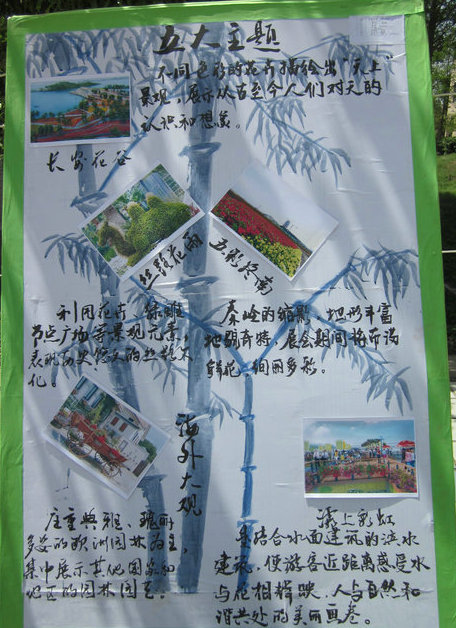 五大主题
不同色彩的花卉描绘出“天上”
景观，展示从古至今人们对天的
认识和想象。
长安花谷
丝路花雨
五彩终南
利用花卉、绿雕
节点广场等景观元素，
表现历史悠久的丝路文
化。
秦岭的缩影，地形丰富
地貌奇特，展会期间将布满
鲜花，绚丽多彩。
海外大观
庄重典雅、瑰丽
多姿的欧洲园林为主，
集中展示其他国家和
地区的园林园艺。
灞上彩虹
是结合水面建筑的滨水
建筑，使游客近距离感受水
与花相辉映，人与自然和
谐共处的美丽画卷。